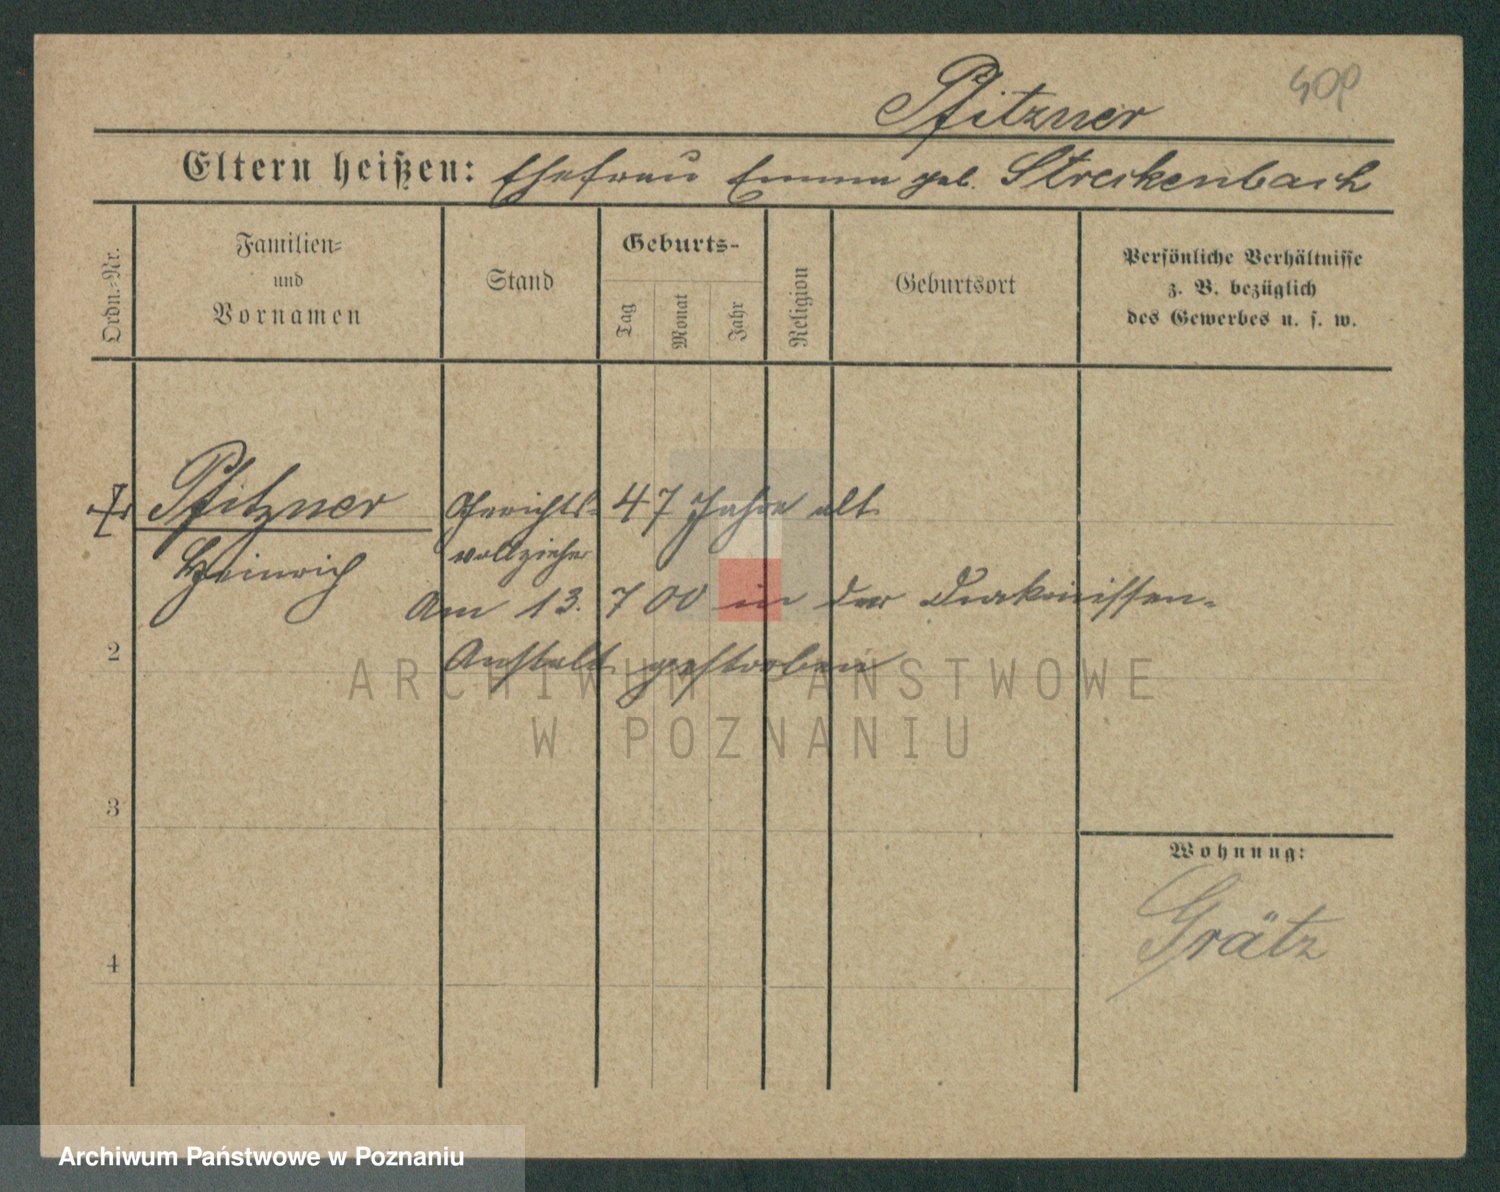 Pfitzner
Eltern heißen: Ehefrau Emma geb. Streckenbach
Ordn.-Nr.
Familien-
und
Vornamen
Stand
Geburts-
Tag
Monat
Jahr
Religion
Geburtsort
Persönliche Verhältnisse
z. B. bezüglich
des Gewerbes u. s. w.
Pfitzner Gerichts- 47 Jahre alt
Heinrich vollzieher
Am 13. 7 00 in der Diakonissen-
2 Anstalt gestorben
ARCHIWUM PAŃSTWOWE
W POZNANIU
3
Wohnung:
Grätz
4
Archiwum Państwowe w Poznaniu